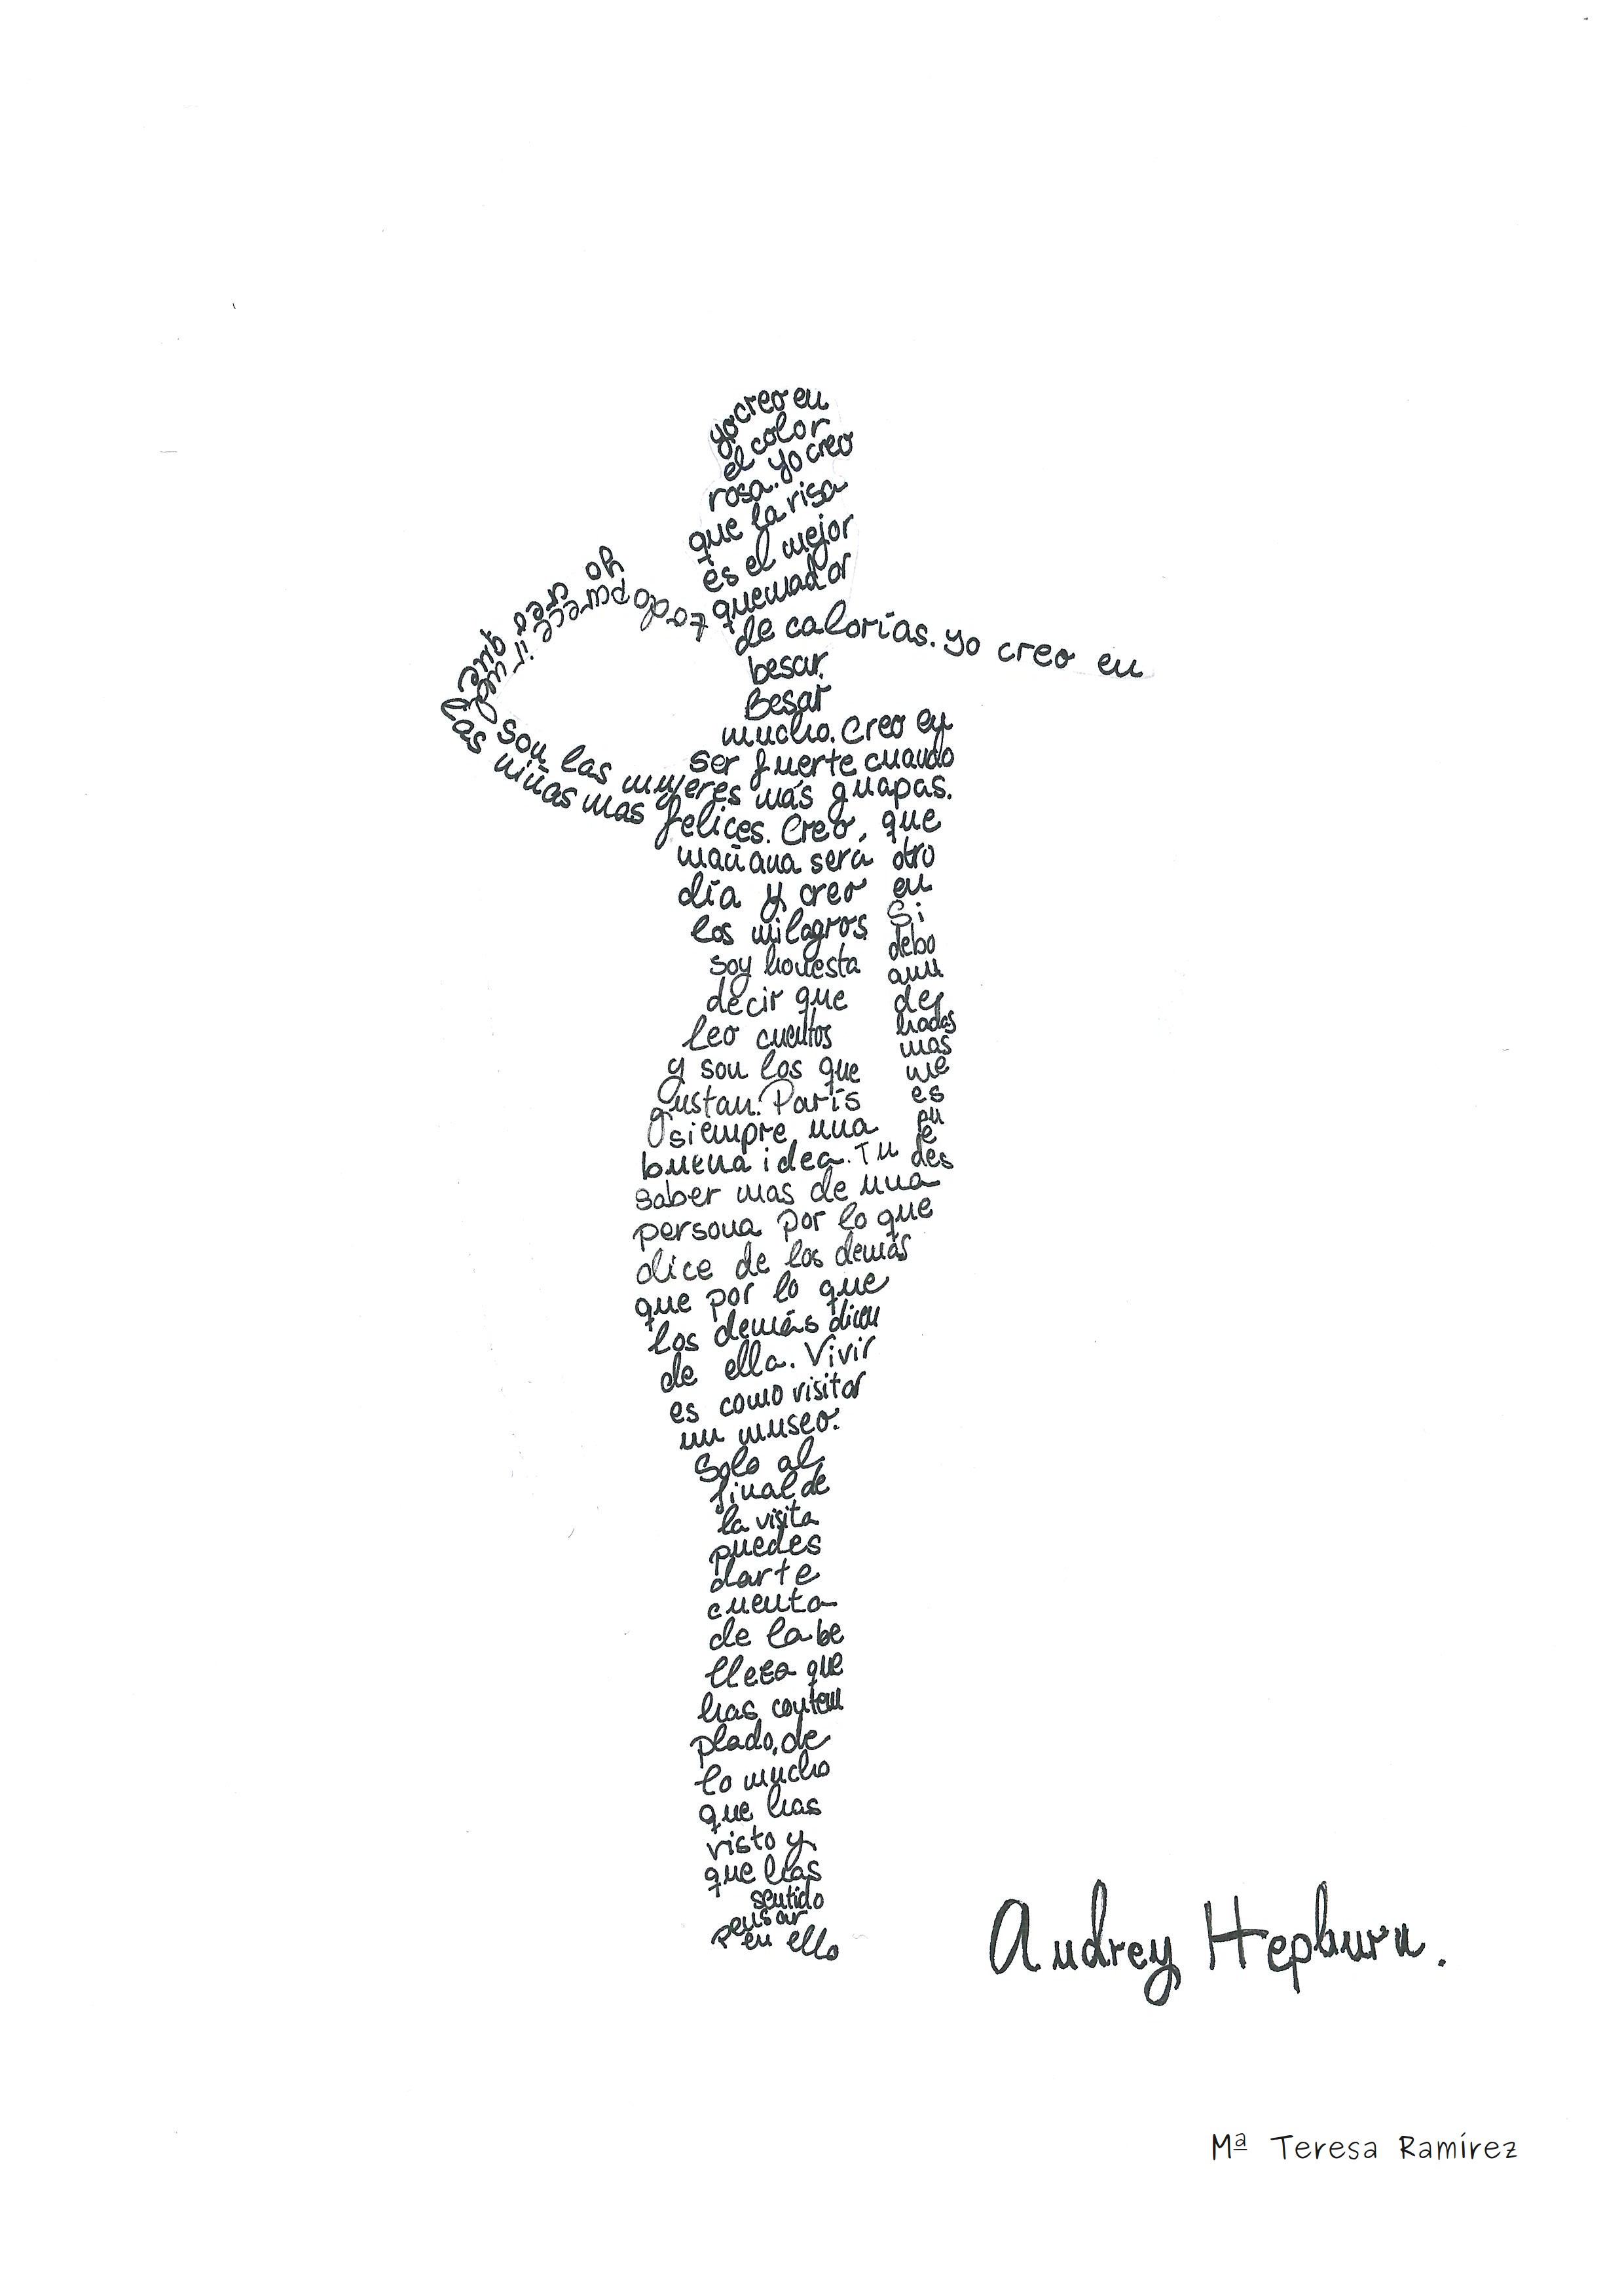 yo creo en
el color
rosa. yo creo
que la risa
es el mejor
quemador
de calorías. yo creo en
besar.
Besar
mucho. Creo en
ser fuerte cuando
todo parece ir mal
yo creo que
las niñas mas felices. Creo, que
son las mujeres más guapas.
mañana será otro
día y creo en
los milagros Si
soy honesta debo
decir que aun
leo cuentos de
hadas
y son los que mas
me
gustan. París es
siempre una
buena idea. Tu pu
e
des
saber mas de una
persona por lo que
dice de los demás
que por lo que
los demás dicen
de ella. Vivir
es como visitar
un museo.
Solo al
final de
la visita
puedes
darte
cuenta
de la be
lleza que
has contem
plado, de
lo mucho
que has
visto y
que has
sentido
pensar
en ello
Audrey Hepburn.
Mª Teresa Ramírez